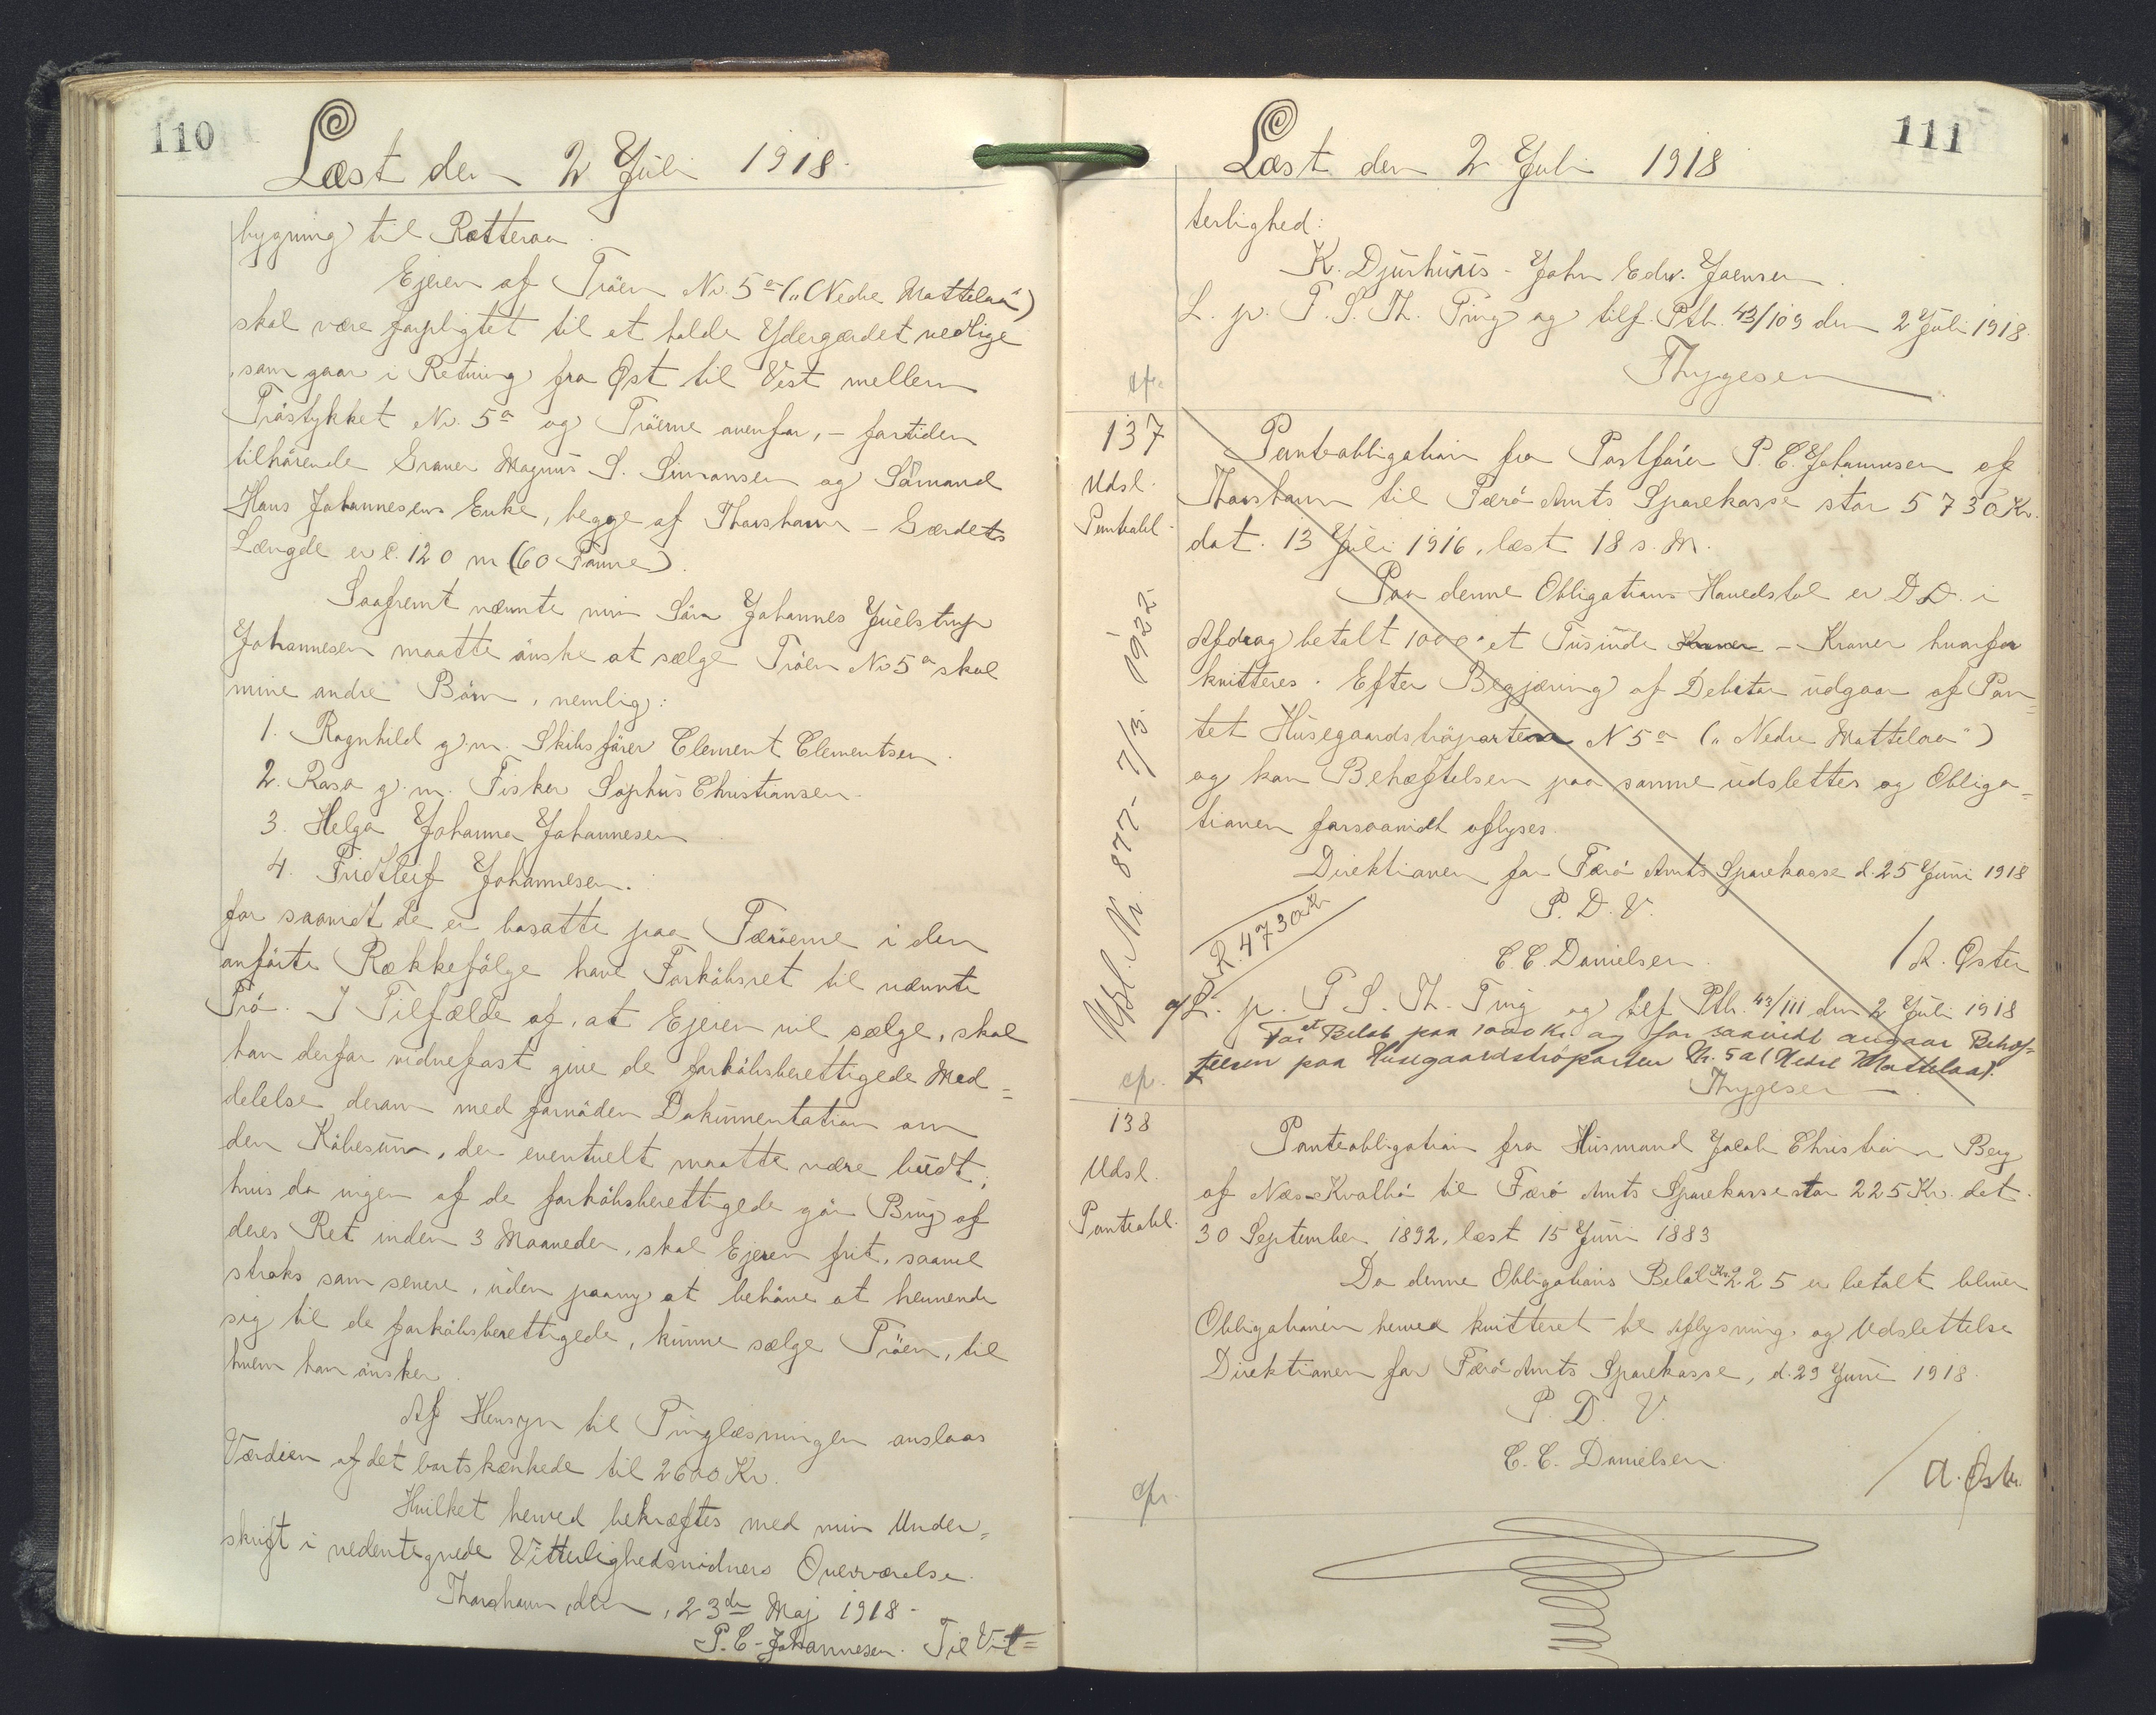 110
Læst den 2 Juli 1918.
bygning til Rætteraa.
Ejeren af Tröen No. 5a („Nedre Mattelaa")
skal være forpligtet til at holde Ydergærdet vedlige
, som gaar i Retning fra Øst til Vest mellem
Tröstykket No. 5a og Tröerne ovenfor, – fortiden
tilhörende Graver Magnus S. Simonsen og Sömand
Hans Johannesens Enke, begge af Thorshavn – Gærdets
Længde er c. 120 m (60 Favne).
Saafremt nævnte min Sön Johannes Juelstrup
Johannesen maatte önske at sælge Tröen No 5a skal
mine andre Börn, nemlig:
1. Ragnhild g.m. Skibsförer Clement Clementsen.
2. Rasa g.m. Fisker Sophus Christiansen.
3. Helga Johanna Johannesen
4. Fridtleif Johannesen.
for saavidt de er bosatte paa Færöerne i den
anförte Rækkefölge have Forköbsret til nævnte
Trö. I Tilfælde af, at Ejeren vil sælge, skal
han derfor vidnefast give de forköbsberettigede Med=
delelse derom med fornöden Dokumentation om
den Köbesum, der eventuelt maatte være budt;
hvis da ingen af de forköbsberettigede gör Brug af
deres Ret inden 3 Maaneder, skal Ejeren frit, saavel
straks som senere, uden paany at behöve at henvende
sig til de forköbsberettigede, kunne sælge Tröen, til
hvem han önsker.
Af Hensyn til Tinglæsningen anslaas
Værdien af det bortskænkede til 2600 Kr.
Hvilket herved bekræftes med min Under=
skrift i nedentegnede Vitterlighedsvidners Overværelse.
Thorshavn, den, 23de Maj 1918.
P. C. Johannesen. Til Vit=
111
Læst den 2 Juli 1918
terlighed:
K. Djurhuus – John Edw. Joensen.
L. p. T. S. Th. Ting og tilf. Ptb. 43/109 den 2 Juli 1918.
Thygesen
cfr.
137
Udsl.
Panteobl.
Panteobligation fra Postförer P. C. Johannesen af
Thorshavn til Færö Amts Sparekasse stor 5730 Kr.
dat. 13 Juli 1916, læst 18 s. M.
Paa denne Obligations Hovedstol er D.D. i
Afdrag betalt 1000 et Tusinde Kroner – Kroner hvorfor
kvitteres. Efter Begjæring af Debitor udgaar af Pan=
tet Husegaardströparten N 5a („Nedre Mattelaa")
og kan Behæftelsen paa samme udslettes og Obliga=
tionen forsaavidt aflyses.
Direktionen for Færö Amts Sparekasse d. 25 Juni 1918
P. D. V.
C. C. Danielsen. / A. Øster
R. 4730 Kr
Udsl. Nr. 877– 7/3. 1922.
a/L. p. T S. Th. Ting og tilf Ptb. 43/111 den 2 Juli 1918
For et Beløb paa 1000 Kr. og for saavidt angaar Behæf=
telsen paa Husegaardströparten Nr. 5a (Nedre Mattelaa).
Thygesen
cfr.
138
Udsl.
Panteobl.
Panteobligation fra Husmand Jacob Christian Berg
af Næs-Kvalbö til Færö Amts Sparekasse stor 225 Kr. dat.
30 September 1892, læst 15 Juni 1883
Da denne Obligations Belöb Kr. 225 er betalt bliver
Obligationen herved kvitteret til Aflysning og Udslettelse
Direktionen for Færö Amts Sparekasse, d. 29 Juni 1918.
P. D. V.
C. C. Danielsen. / A. Øster.
cfr.